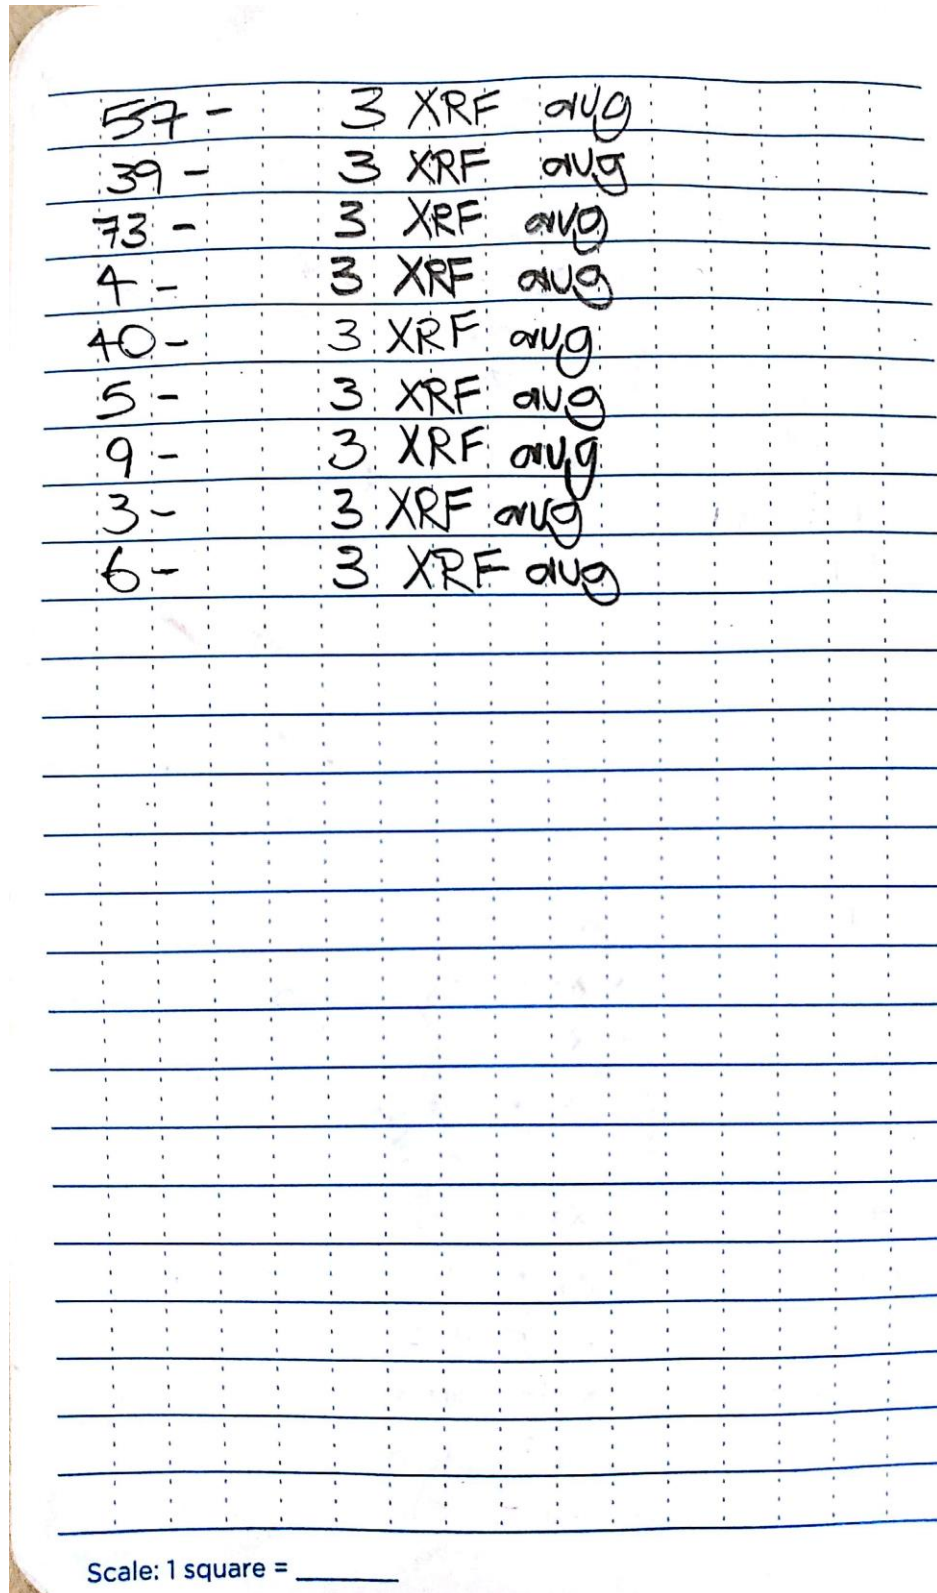 57 - 3 XRF avg
39 - 3 XRF avg
73 - 3 XRF avg
4 - 3 XRF avg
40 - 3 XRF avg
5 - 3 XRF avg
9 - 3 XRF avg
3 - 3 XRF avg
6 - 3 XRF avg
Scale: 1 square = ________